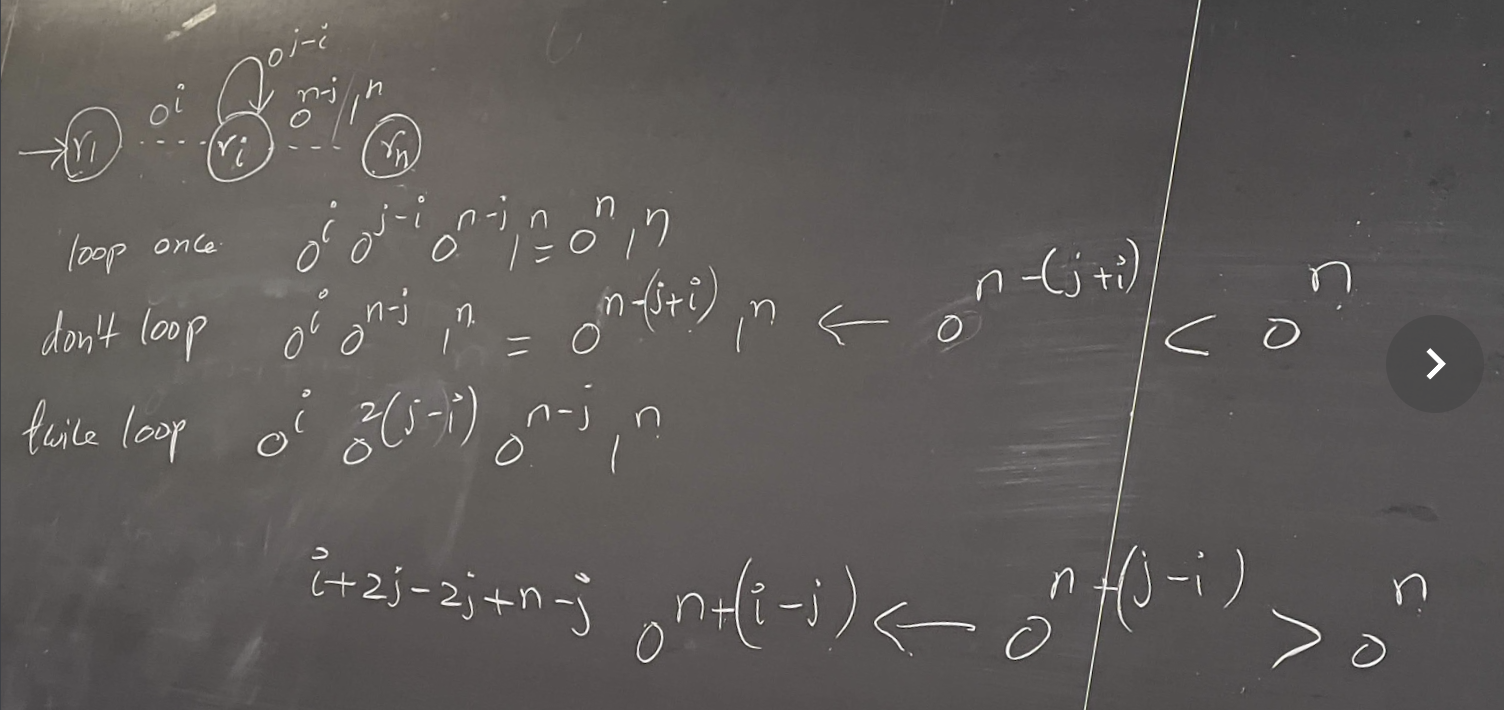 0^{j-i}
0^i 0^{n-j} / 1^n
→ r_1 ---- r_i ---- r_n
loop once 0^i 0^{j-i} 0^{n-j} 1^n = 0^n 1^n
don't loop 0^i 0^{n-j} 1^n = 0^{n-(j+i)} 1^n ← 0^{n-(j+i)} < 0^n
twice loop 0^i 0^{2(j-i)} 0^{n-j} 1^n
i+2j-2j+n-j 0^{n+(i-j)} ← 0^{n+(j-i)} > 0^n